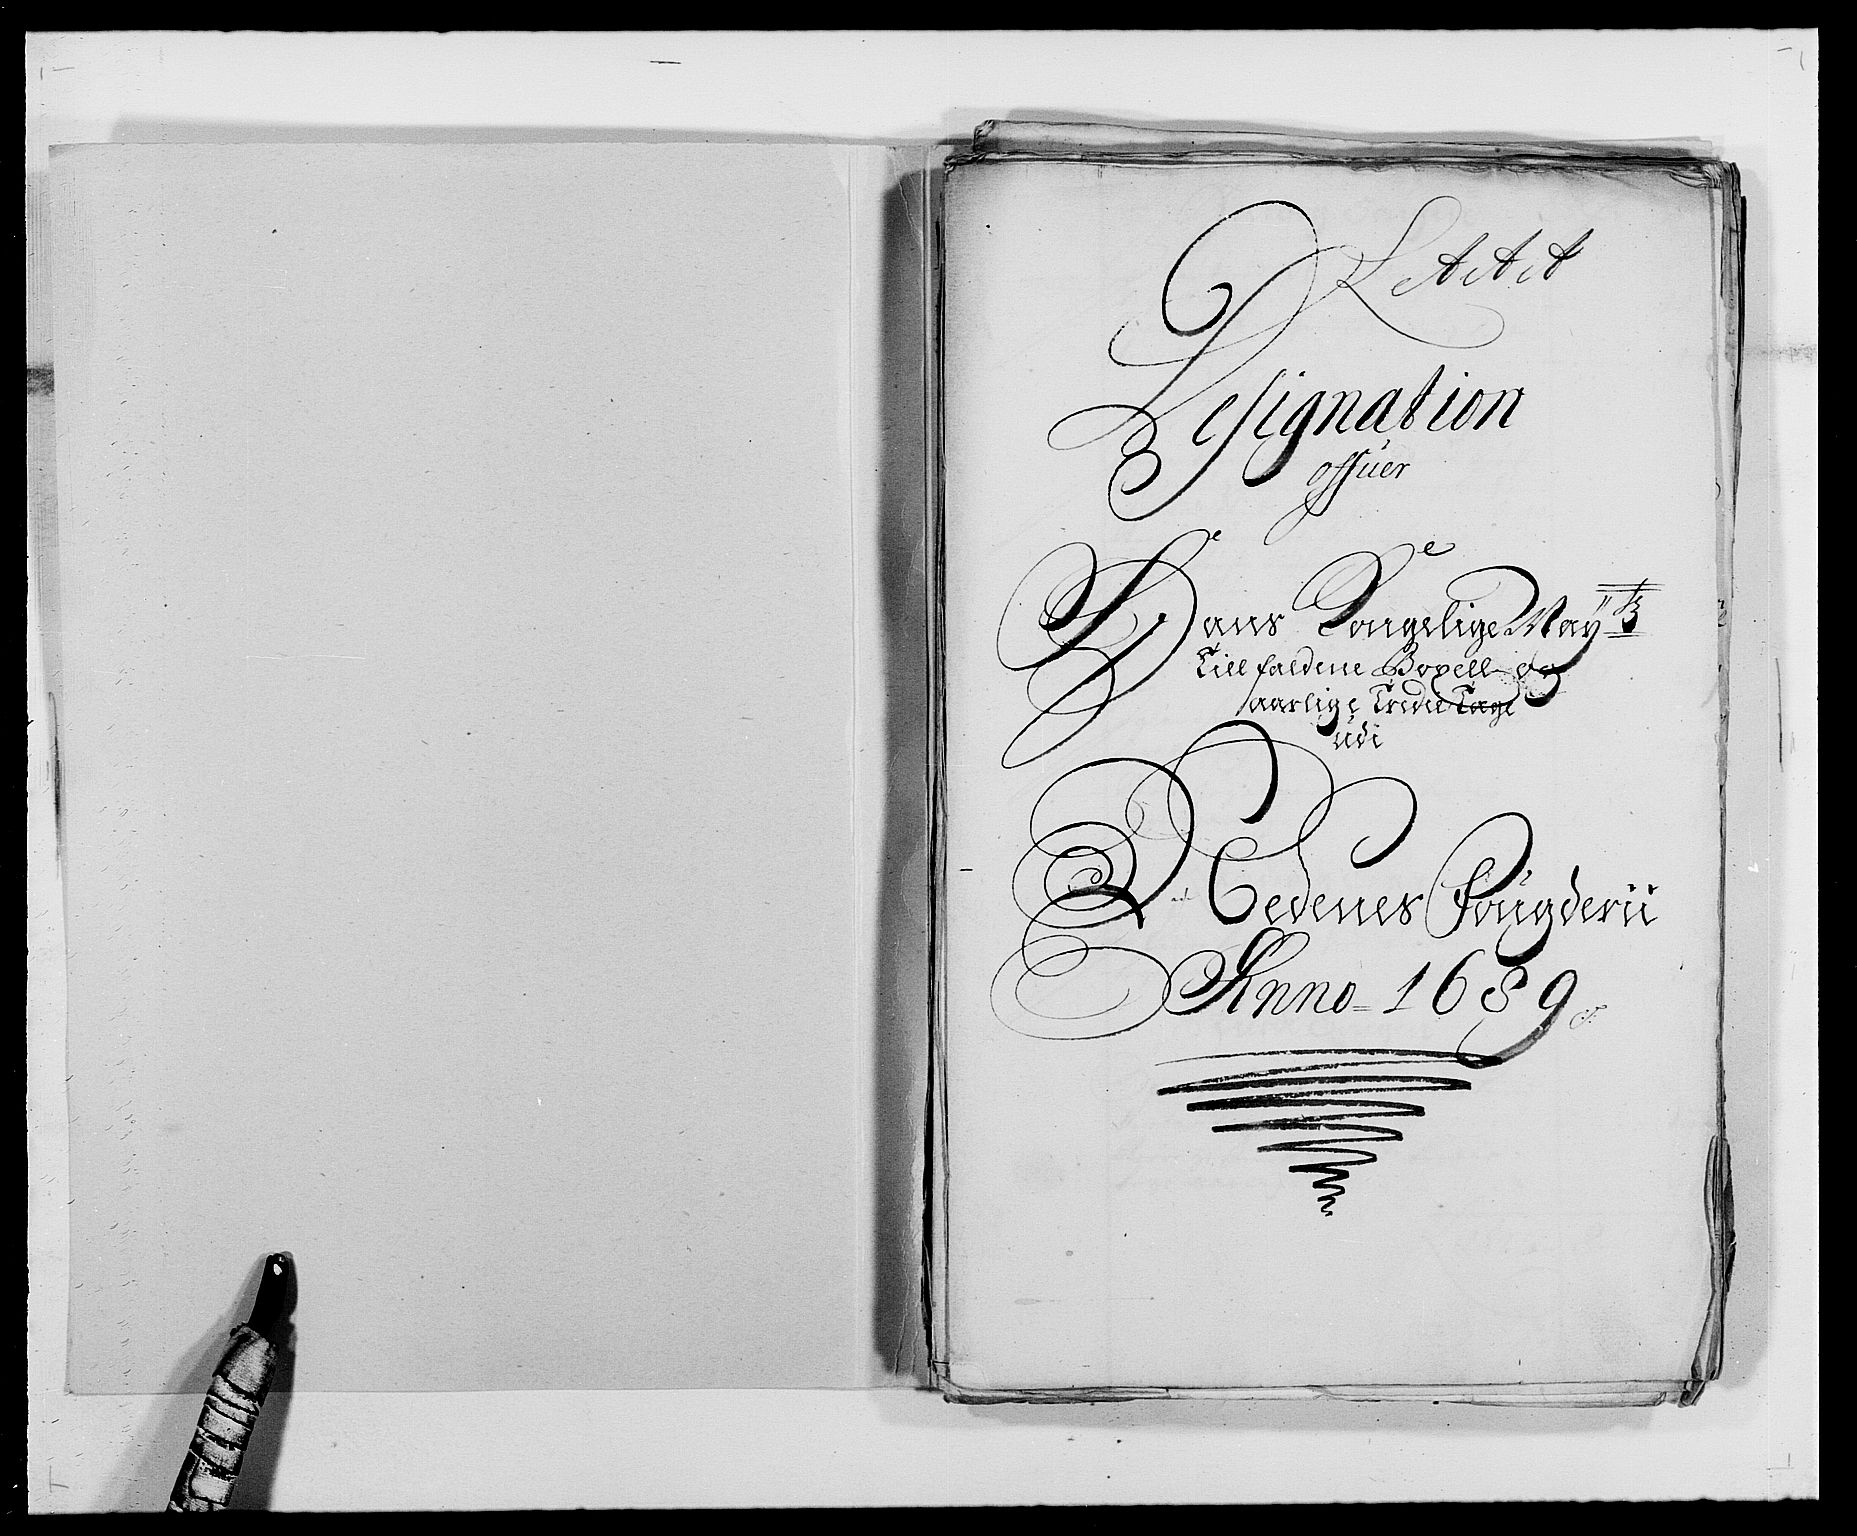 Designation
offuer
Hans Kongelige May:tz
Tillfaldene Boxell og
aarlige Tredie Tage
udi
Nedenes Fougderii
Anno 1689